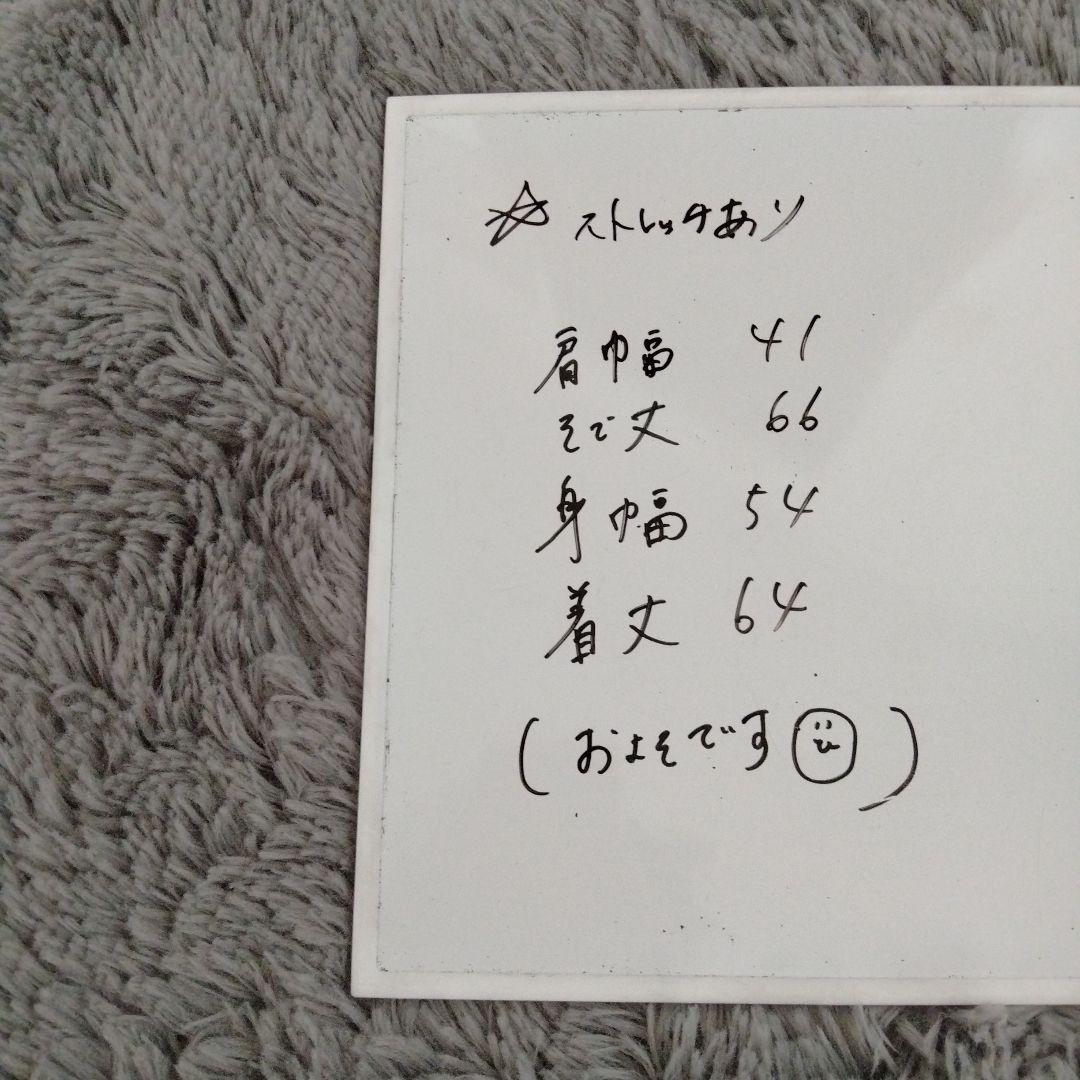 ☆ ストレッチあり
肩巾幅 41
そで丈 66
身巾幅 54
着丈 64
(およそです)